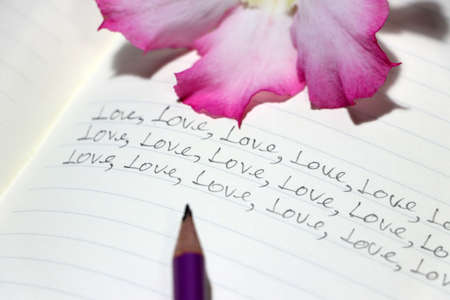 Love, Love, Love, Love, Love, Lo
Love, Love, Love, Love, Love, Lov
Love, Love, Love, Love, Love, Love